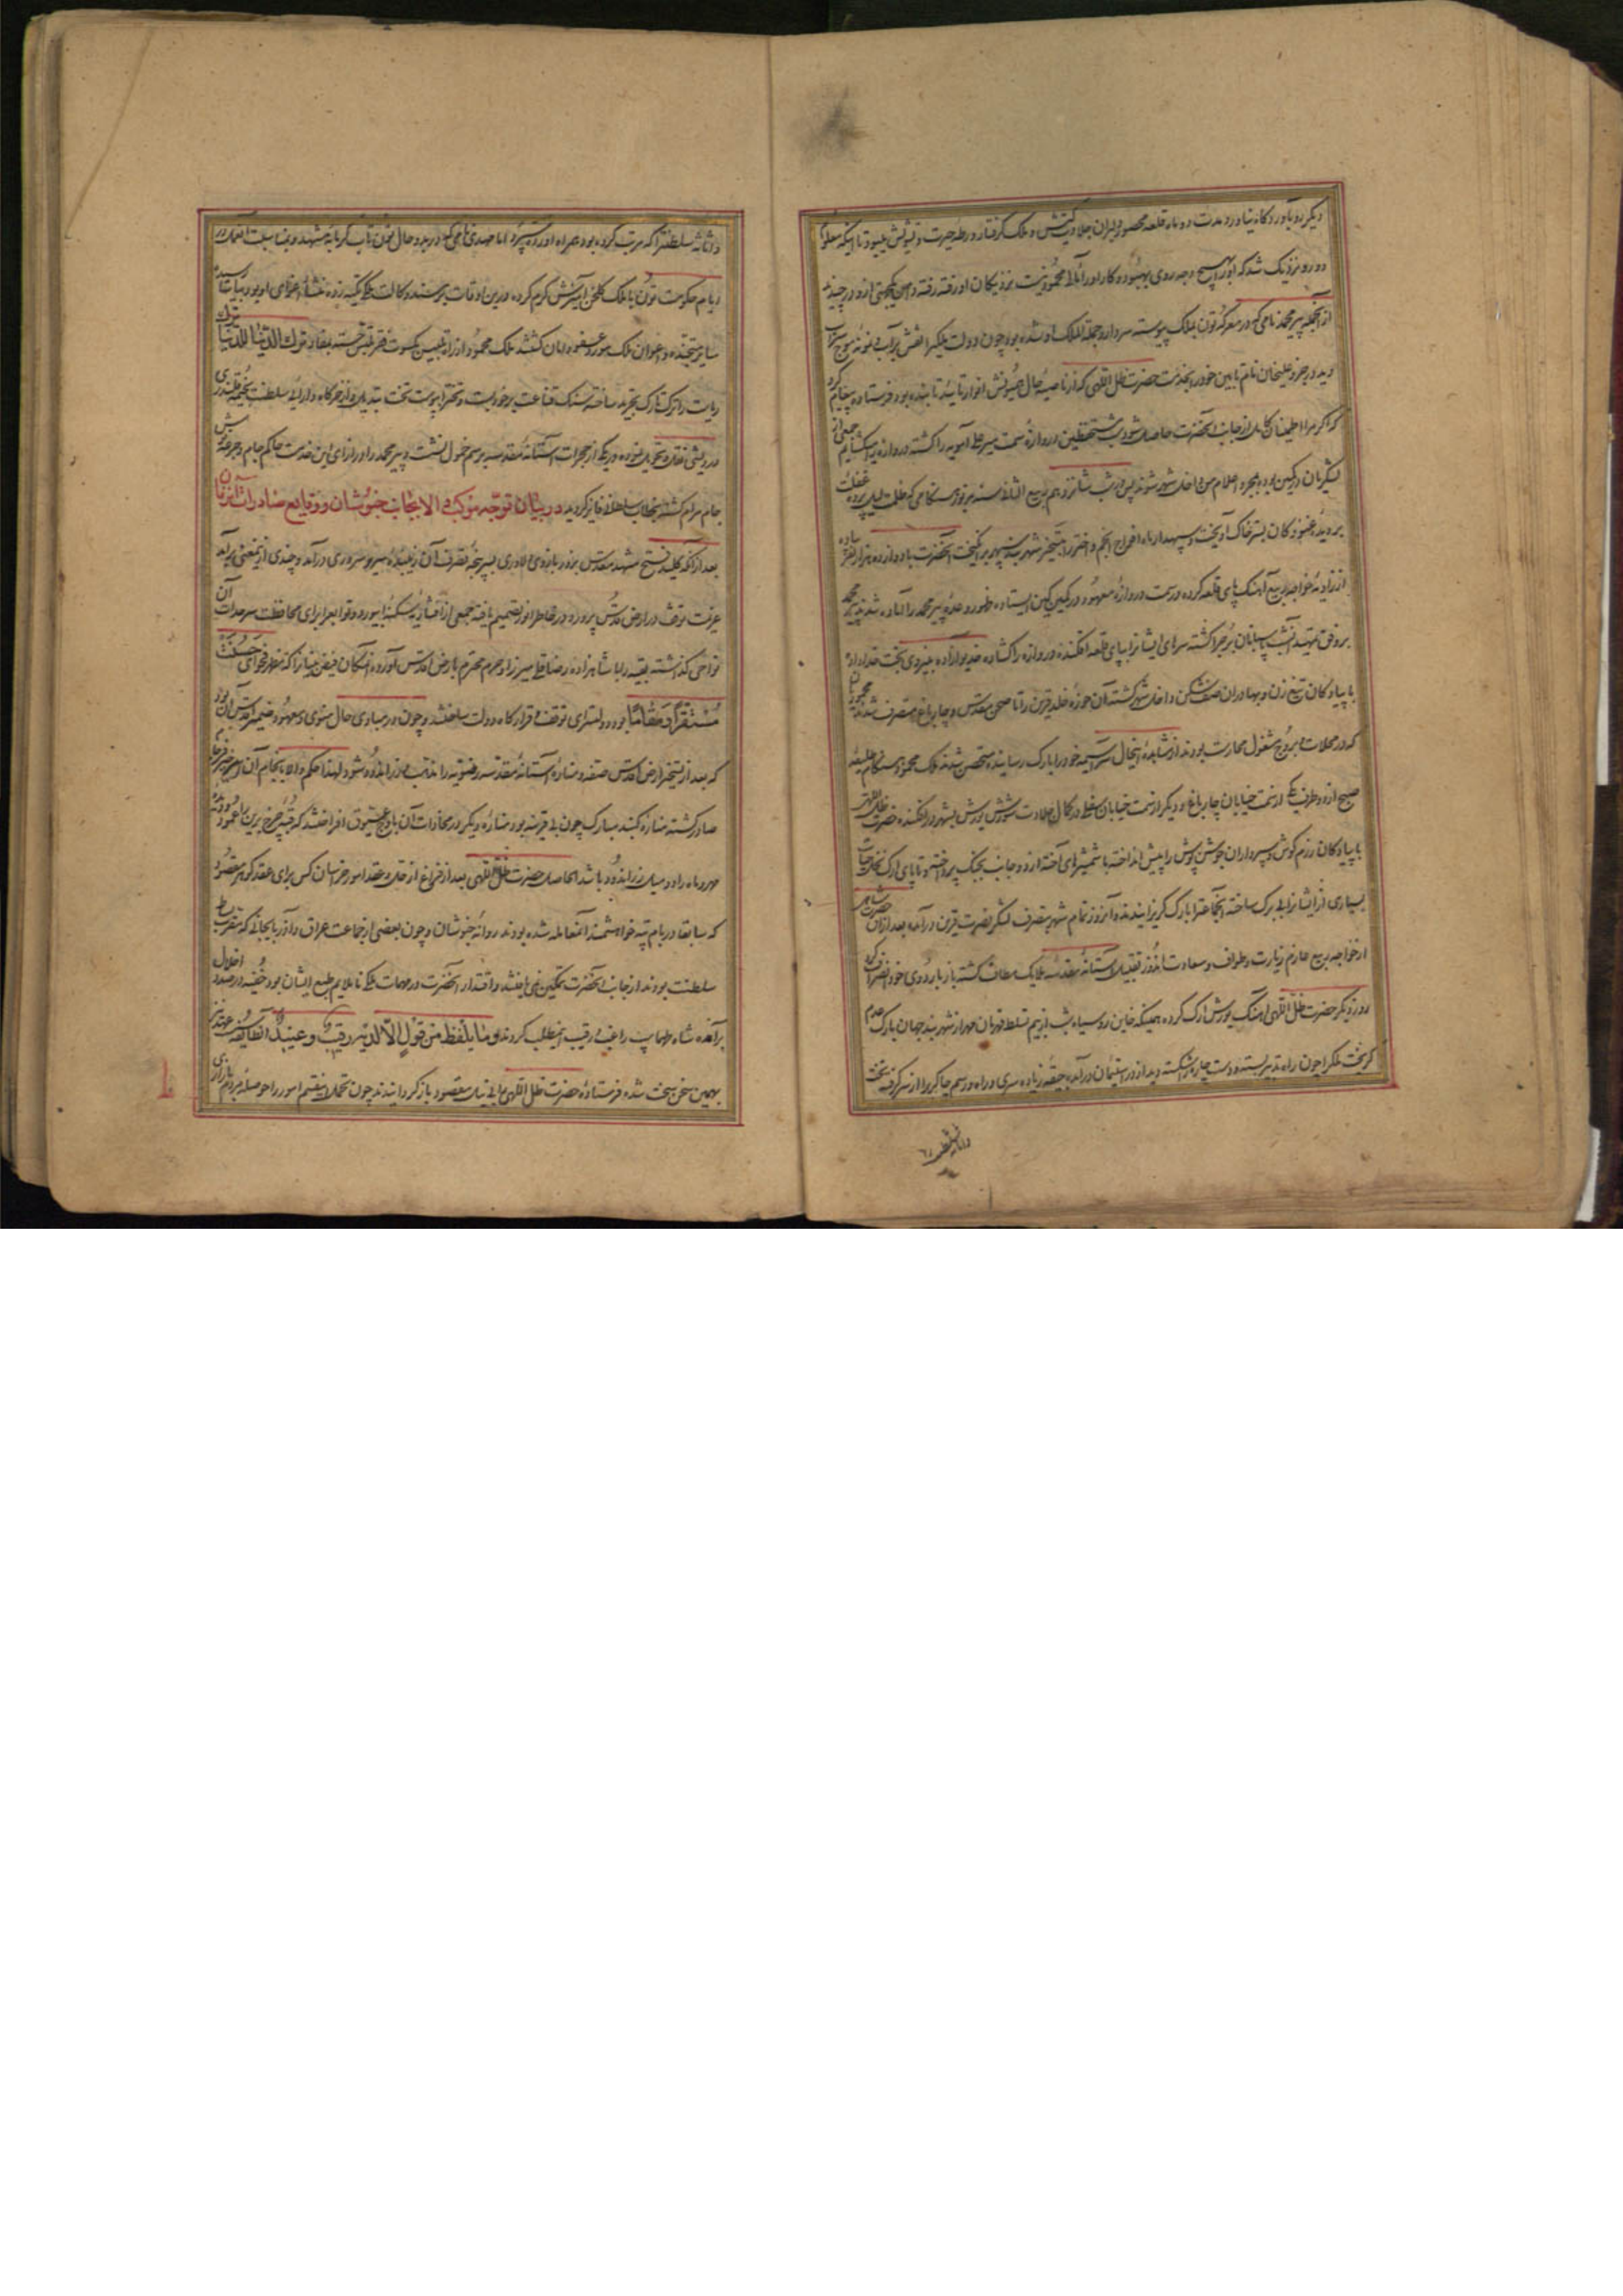 دیگر رو بآوردگاه نیاورد مدت دو ماه قلعه محصور و دلیران جلادت کیش و ملک گرفتار ورطهٔ حیرت و تشویش میبود تا اینکه معلوم
دور و نزدیک شد که او را بهیچ وجه روی بهبود و کار او را مآل محمود نیست نزدیکان او رفته رفته دامن یکجهتی ازو در چیدند
از آنجمله پیر محمد نامی که در معرکهٔ تون بملک پیوسته سردار و جملة الملک او شده بود چون دولت ملک را نقش بر آب و نمونهٔ موج سراب
دید و بر خرد علیخان نام تابین خود را بخدمت حضرت ظل اللهی که از ناصیهٔ حال همیونش انوار تأیید تابنده بود فرستاده پیغام کرد
که اگر مرا اطمینان کامل از جانب آنحضرت حاصل شود شب مستحفظین دروازهٔ سمت میر علی آمویه را کشته دروازه را میگشایم جمعی از
لشکریان در کمین بوده بمجرد اعلام من داخل شهر شوند پس در شب شانزدهم ربیع الثانی سنه مزبوره هنگامی که ظلمت لیل پرده غفلت
بر دیدهٔ غنودگان بستر خاک آویخت و سپهدار ماه افواج انجم و اختر را بتسخیر شهربند سپهر برانگیخت آنحضرت با دوازده هزار نفر پیاده
از زاویهٔ خواجه ربیع آهنگ پای قلعه کرده در سمت دروازهٔ معهود در کمین کین ایستاده ظهور وعدهٔ پیر محمد را آماده شدند پیر محمد
بر وفق تمهید آنشب پاسبانان برج را کشته سرهای ایشانرا بپای قلعه افکنده دروازه را گشاده خدیو آزاده بنیروی بخت خداداد
با پیادگان تیغ زن و بهادران صف شکن داخل شهر گشته آن حوزهٔ خلد قرین را تا صحن مقدس و چارباغ متصرف شدند محمودیان
که در محلات و بروج مشغول محارست بودند از مشاهدهٔ اینحال سراسیمه خود را بارک رسانیده متحصن شدند ملک محمود هنگام طلیعه
صبح از دو طرف یکی از سمت خیابان چارباغ و دیگر از سمت خیابان سفلی در کمال جلادت شورش یورش بشهر در افکنده حضرت ظل اللهی
با پیادگان رزم کوش و سپرداران جوشن پوش را پیش انداخته با شمشیرهای آخته از دو جانب بجنگ پرداخته و تا پای ارک نخل حیات
بسیاری از ایشانرا بی برگ ساخته آنجماعت را بارک گریزانیدند و آنروز تمام شهر بتصرف لشکر نصرت قرین درآمده بعد از آن حضرت شاهی
از خواجه ربیع عازم زیارت و طواف و سعادت اندوز تقبیل آستانهٔ مقدسهٔ ملایک مطاف گشته باز باردوی خود انصراف کرد
روز دیگر حضرت ظل اللهی آهنگ یورش ارک کرده همینکه خاین روسیاه شب از بیم تسلط قهرمان مهر از شهربند جهان بارک عدم
گریخت ملک را چون راه تدبیر بسته و دست چاره شکسته دید از در استیمان درآمده جیقهٔ زیاده سری و راه و رسم جاگیرو را از سر گرفت تخت
و اثاثه سلطنترا
و اثاثهٔ سلطنترا که مرتب کرده بود همراه آورده سپرد اما مهدی نامی که در بدو حال تون تاب گرمابه مشهد و بمناسبت عمل در
ایام حکومت تون با ملک گلخن آمیزش گرم کرده درین اوقات بر مسند وکالت ملک تکیه زده منشأ اغوای او بود بیاسا رسید
سایر متجنده و اعوان ملک مورد عفو و امان گشتند ملک محمود از راه تلبیس بکسوت فقر ملبس گشته بمفاد ترک الدنیا للدنیا ترک
ریاست را ترک تارک تجرید ساخته سنگ قناعت بر خود بست و تخت را بپوست تخت تبدیل و از خرگاه دارائی سلطنت بخیمه قلندری
درویشی نقل و تحویل نموده در یکی از حجرات آستانهٔ مقدسه برسم خمول نشست و پیر محمد را در ازای این خدمت حاکم جام و جرعه کش
جام مرام گشته بخطاب سلطانی فایز گردید در بیان توجه موکب والا بجانب خبوشان و وقایع صادرات آنزمان
بعد از آنکه کلید فتح مشهد مقدس بزور بازوی دلاوری بسرپنجهٔ تصرف آن زیبندهٔ میر و سروری درآمد و چندی ازین معنی برآمد
عزیمت توقف در ارض اقدس پرورده در خاطر انور تصمیم یافته جمعی از افشاریه سکنهٔ ابیورد و توابع را برای محافظت سرحدات آن
نواحی گذاشته بقیه را با شاهزاده رضاقلی میرزا و حرم محترم بارض اقدس آورده آنمکان فیض بنیان را که مظهر فحوای حسنت
مستقرا و مقاما بود دولتسرای توقف و قرارگاه دولت ساختند و چون در مبادی حال منوی و معهود ضمیر اقدس آن بود
که بعد از تسخیر ارض اقدس صفه و منارهٔ آستانهٔ مقدسه رضویه را مذهب و زر اندود شود لهذا حکم والا بانجام آن امر خیر فرجام
صادر گشته منارهٔ گنبد مبارک چون بی قرینه بود منارهٔ دیگر در محاذات آن باوج عیوق افراختند که قبهٔ چرخ برین را عمود و قبهٔ
مهر و ماه را دو میل زر اندود باشد الحاصل حضرت ظل اللهی بعد از فراغ از حل و عقد امور خراسان کس برای عقد گوهر مقصود
که سابقا در بام تپه خواهشمند آنمعامله شده بودند روانهٔ خبوشان و چون بعضی از جماعت عراق و آذربایجانی که مقرب بساط
سلطنت بودند از جانب آنحضرت تمکین نمی یافتند و اقتدار آنحضرت در مهمات ملکی ناملایم طبع ایشان بود خفیه در صدد اخلال
برآمده شاه طهماسب را غیب رقیب اینمطلب کردند و ما یلفظ من قول الا لدیه رقیب و عتید آنطایفه عنید نیز
بهمین سخن سخت شده فرستادهٔ حضرت ظل اللهی را بی نیل مقصود باز گردانیدند چون تحمل اینقسم امور را حوصلهٔ مردم بازاری